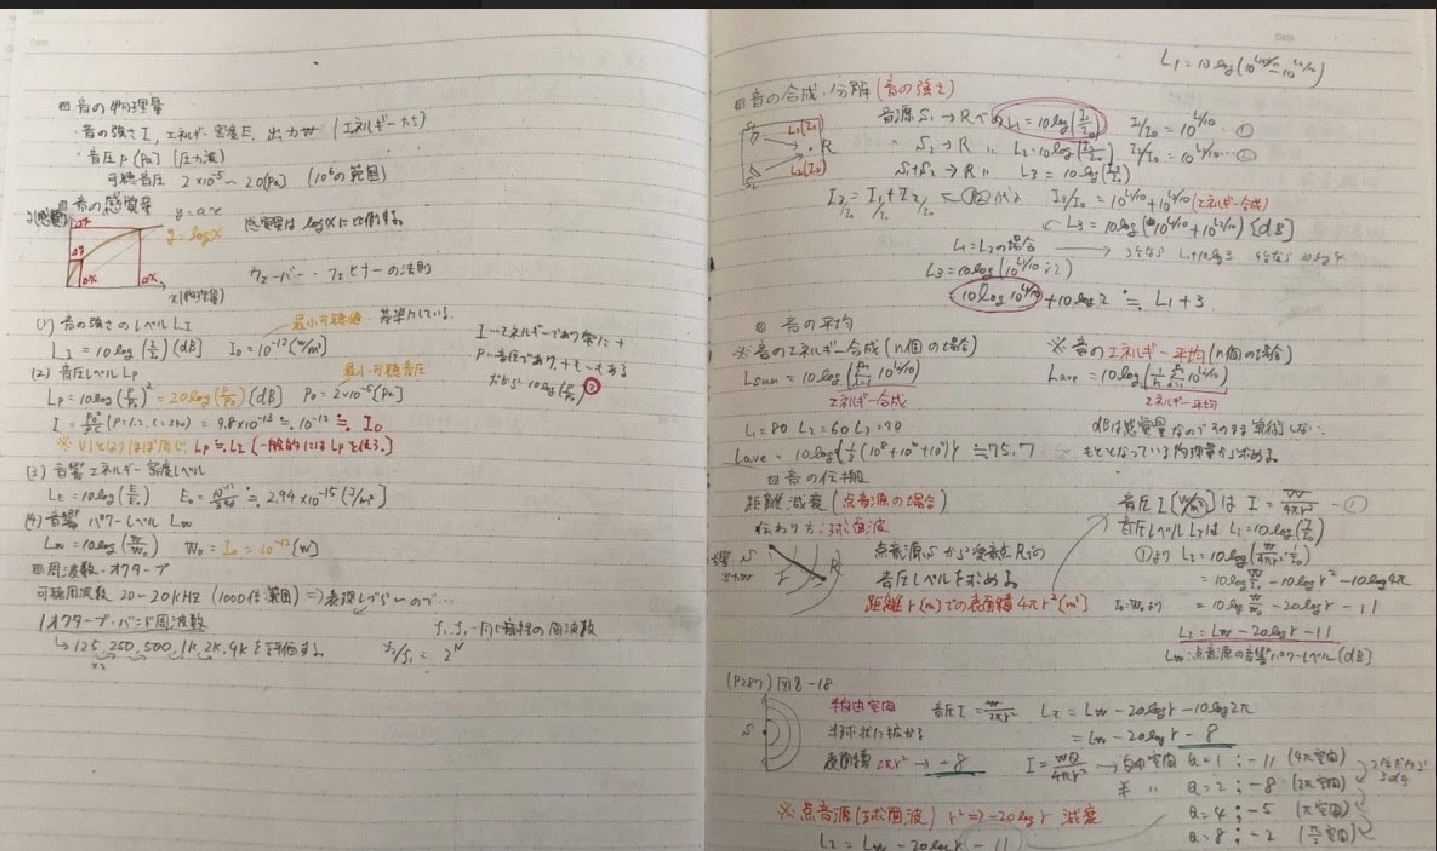 音の物理量
・音の強さ I, エネルギー密度 E, 出力 W (エネルギー
・音圧 P [Pa] (圧力波)
可聴音圧 2×10⁻⁵〜20[Pa] (10⁶の範囲)
音の感覚量
y(感覚)
y = logx
感覚量は logxに比例する。
ウェーバー・フェヒナーの法則
x(物理量)
(1) 音の強さのレベル LI
最小可聴値 基準にしている.
LI = 10log(I/I₀) (dB) I₀ = 10⁻¹²[W/m²]
(2) 音圧レベル Lp
最小可聴音圧
Lp = 10log(P/P₀)² = 20log(P/P₀) [dB] P₀ = 2×10⁻⁵[Pa]
≒ 10⁻¹² ≒ I₀
I…エネルギーであり常に+
P…音圧であり,+も-もある
※ (1)と(2)はほぼ同じ Lp≒LI (一般的には Lpを使う.]
(3) 音響エネルギー密度レベル
LE = 10log(E/E₀) ≒ 2.94×10⁻¹⁵ (J/m³]
(4) 音響パワーレベル Lw
Lw = 10log(W/W₀) W₀ = I₀ = 10⁻¹²[W]
周波数・オクターブ
可聴周波数 20〜20kHz (1000倍範囲) ⇒ 表現しづらいので…
1オクターブ・バンド周波数
↳ 125, 250, 500, 1k, 2k, 4k を評価する
×2
f₂/f₁ = 2ᴺ
L₁ = 10log(10^L3/10 − 10^L2/10)
音の合成・分解 (音の強さ)
音源 S₁ → R L₁ = 10log(I₁/I₀) I₁/I₀ = 10^L1/10 ①
〃 S₂ → R 〃 L₂ = 10log(I₂/I₀) I₂/I₀ = 10^L2/10 … ②
S₁+S₂ → R 〃 L₃ = 10log(I₃/I₀)
L₁(I₁)
R
L₂(I₂)
I₃/I₀ = I₁/I₀ + I₂/I₀ ← ①②代入 I₃/I₀ = 10^L1/10 + 10^L2/10 (エネルギー合成)
L₃ = 10log(10^L1/10 + 10^L2/10) [dB]
L₁=L₂の場合
L₃ = 10log(10^L1/10 × 2)
= 10log10^L1/10 + 10log2 ≒ L₁+3
音の平均
※ 音のエネルギー合成 (n個の場合)
Lsum = 10log(Σ10^Li/10)
エネルギー合成
※ 音のエネルギー平均 (n個の場合)
Lave = 10log(1/n Σ10^Li/10)
エネルギー平均
L₁=80 L₂=60 L₃=70
Lave = 10log{1/3(10⁸+10⁶+10⁷)} ≒75.7
もととなっている物理量から求める
音の伝搬
距離減衰 (点音源の場合)
伝わり方:球面波
点音源Sから受音点Rでの
音圧レベルを求める
距離 r(m)での表面積 4πr²(m²)
音圧 I [W/m²] は I = W/4πr² ―①
音圧レベル LIは LI = 10log(I/I₀)
①より LI = 10log(W/4πr²・1/I₀)
= 10log W/I₀ − 10log r² − 10log4π
I₀=W₀より = 10log W/W₀ − 20log r − 11
LI = Lw − 20log r − 11
Lw:点音源の音響パワーレベル(dB]
図8-18
半自由空間 音圧 I = W/2πr² LI = Lw − 20log r − 10log2π
半球状に拡がる = Lw − 20log r − 8
表面積 2πr² → −8 I = WQ/4πr² → 自由空間 Q=1 ; −11 (4π空間)
半 〃 Q=2 ; −8 (2π空間)
Q=4 ; −5 (π空間)
Q=8 ; −2 (π/2空間)
※点音源(球面波) r²⇒−20log r 減衰
LI = Lw − 20log r − 11